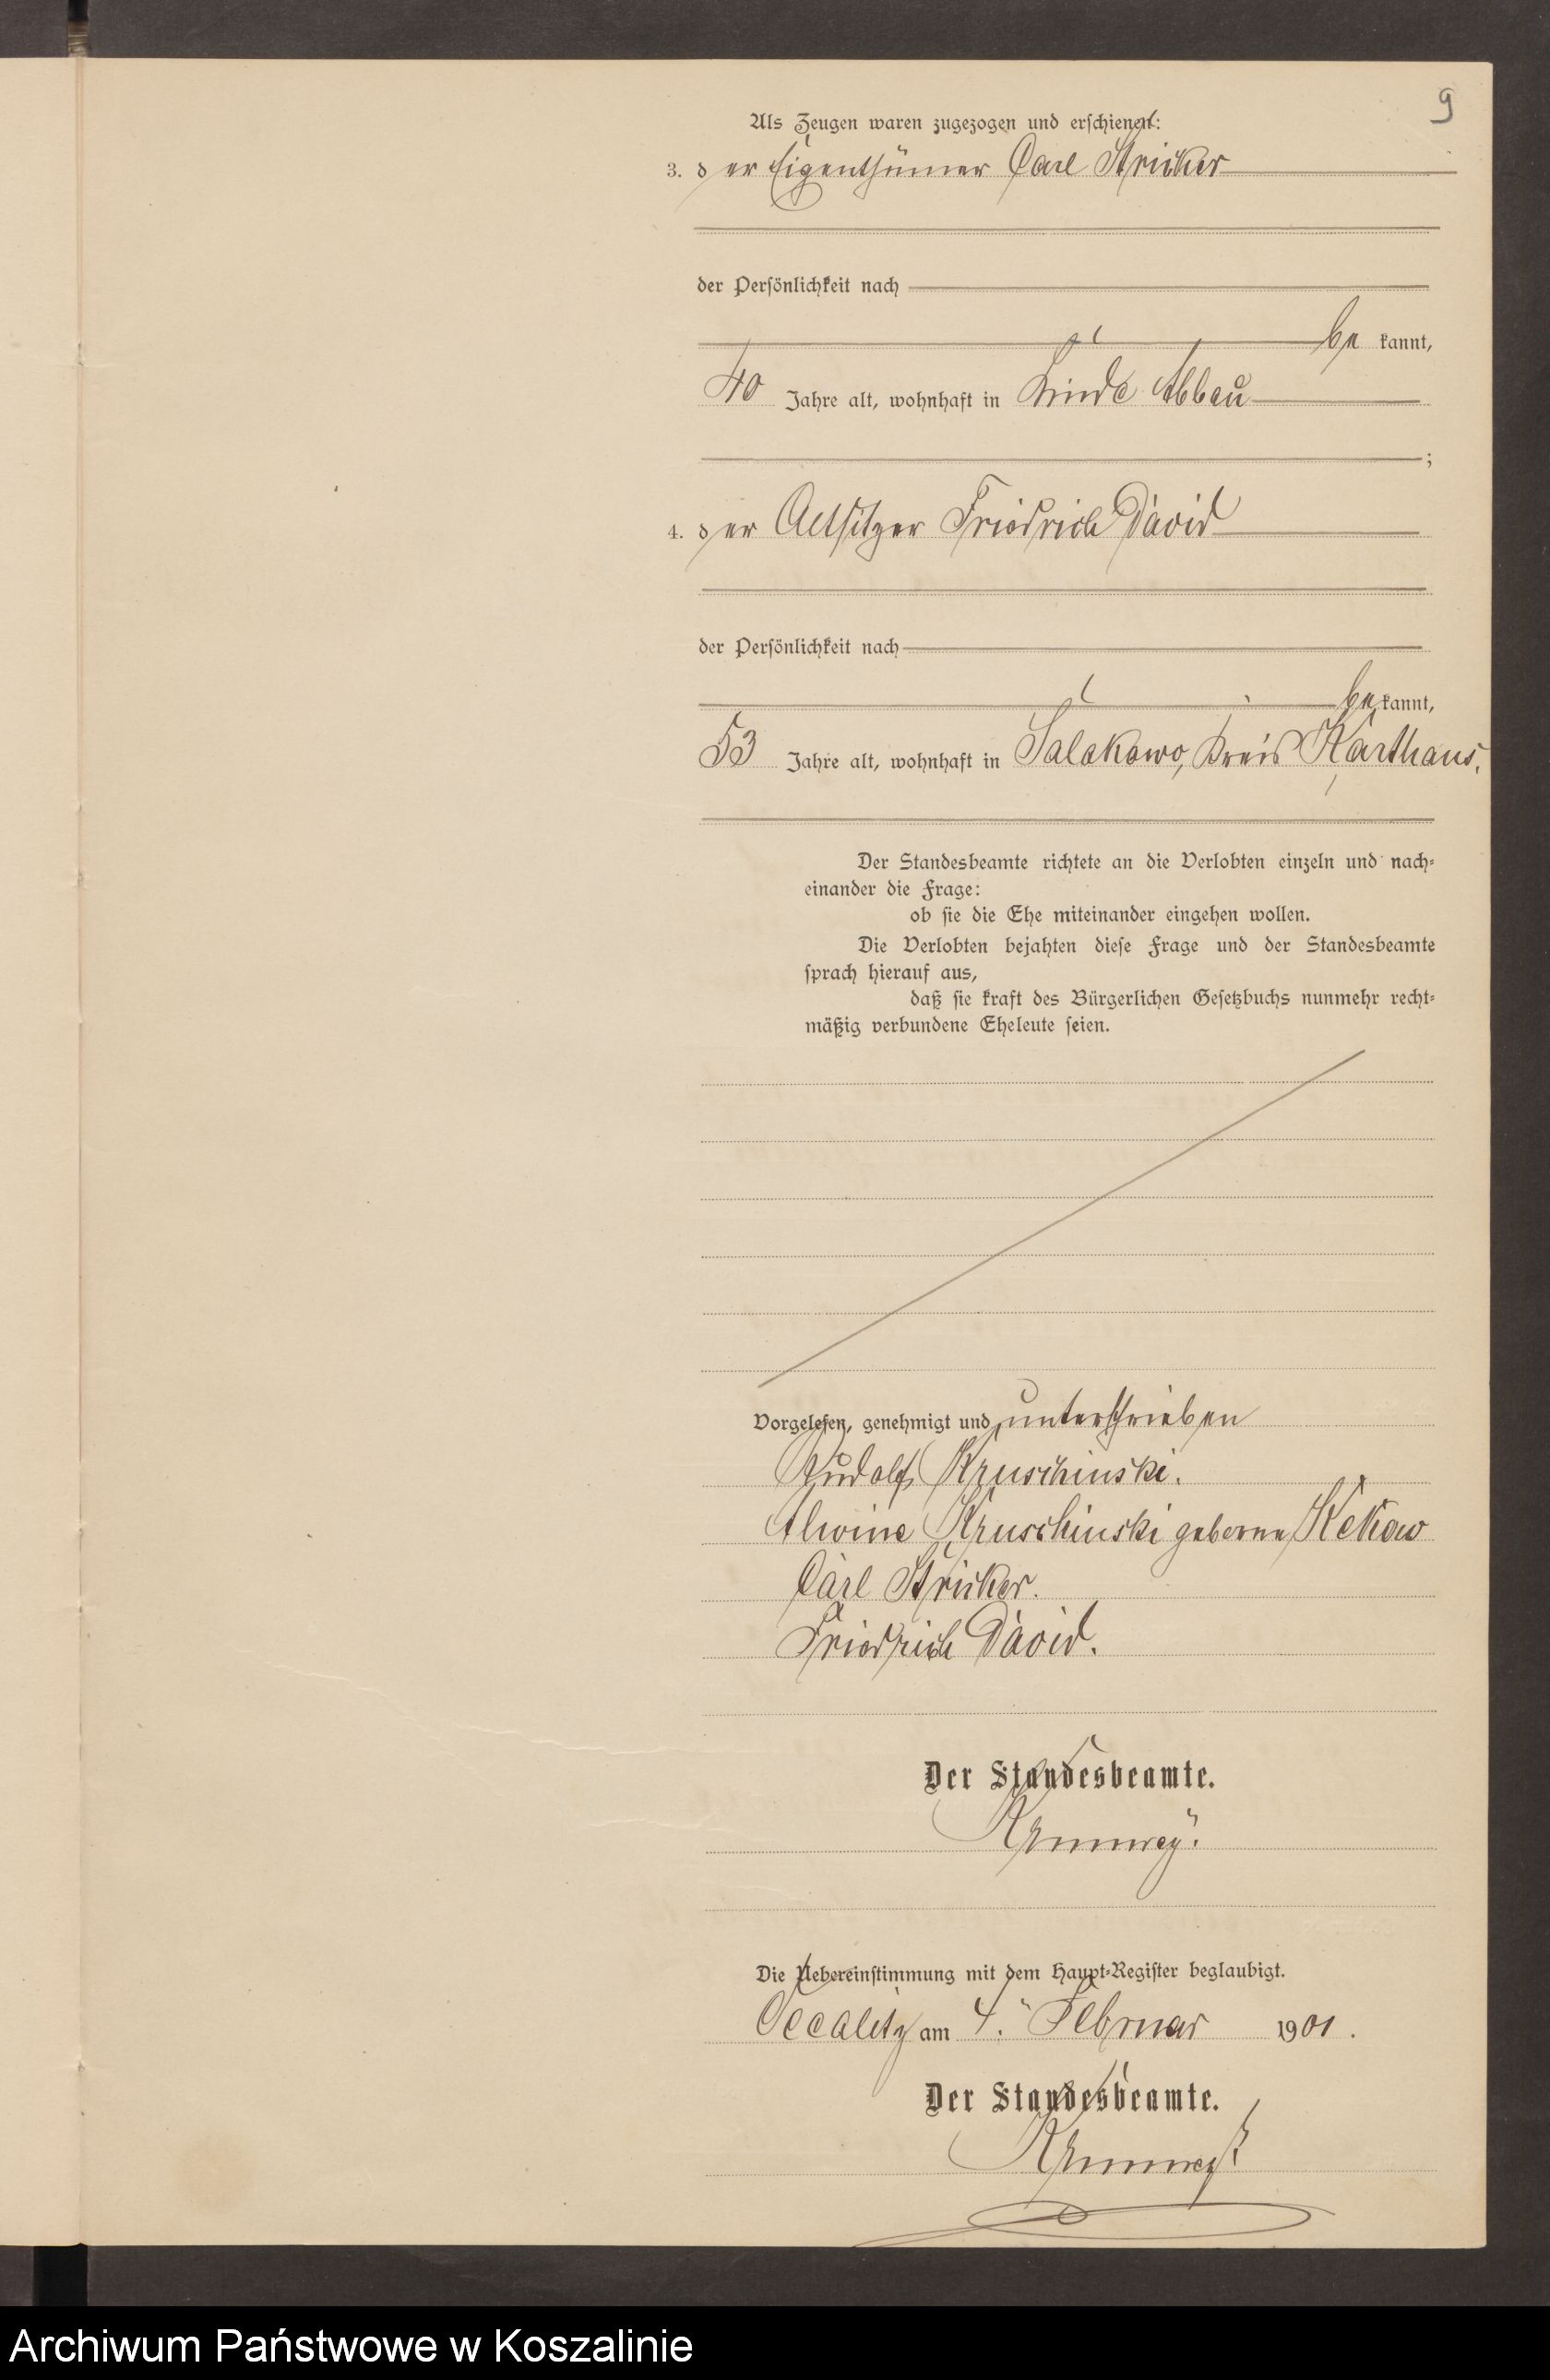 9
Als Zeugen waren zugezogen und erschienen:
3. der Eigenthümer Carl Stricker
der Persönlichkeit nach
be kannt,
40 Jahre alt, wohnhaft in Linde Abbau
;
4. der Altsitzer Friedrich David
der Persönlichkeit nach
be kannt,
53 Jahre alt, wohnhaft in Salakowo, Kreis Karthaus.
Der Standesbeamte richtete an die Verlobten einzeln und nach-
einander die Frage:
ob sie die Ehe miteinander eingehen wollen.
Die Verlobten bejahten diese Frage und der Standesbeamte
sprach hierauf aus,
daß sie kraft des Bürgerlichen Gesetzbuchs nunmehr recht-
mäßig verbundene Eheleute seien.
Vorgelesen, genehmigt und unterschrieben
Rudolf Kruschinski.
Alwine Kruschinski geborne Kekow
Carl Stricker.
Friedrich David.
Der Standesbeamte.
Die Uebereinstimmung mit dem Haupt-Register beglaubigt.
Occalitz am 4. Februar 1901.
Der Standesbeamte.
Archiwum Państwowe w Koszalinie